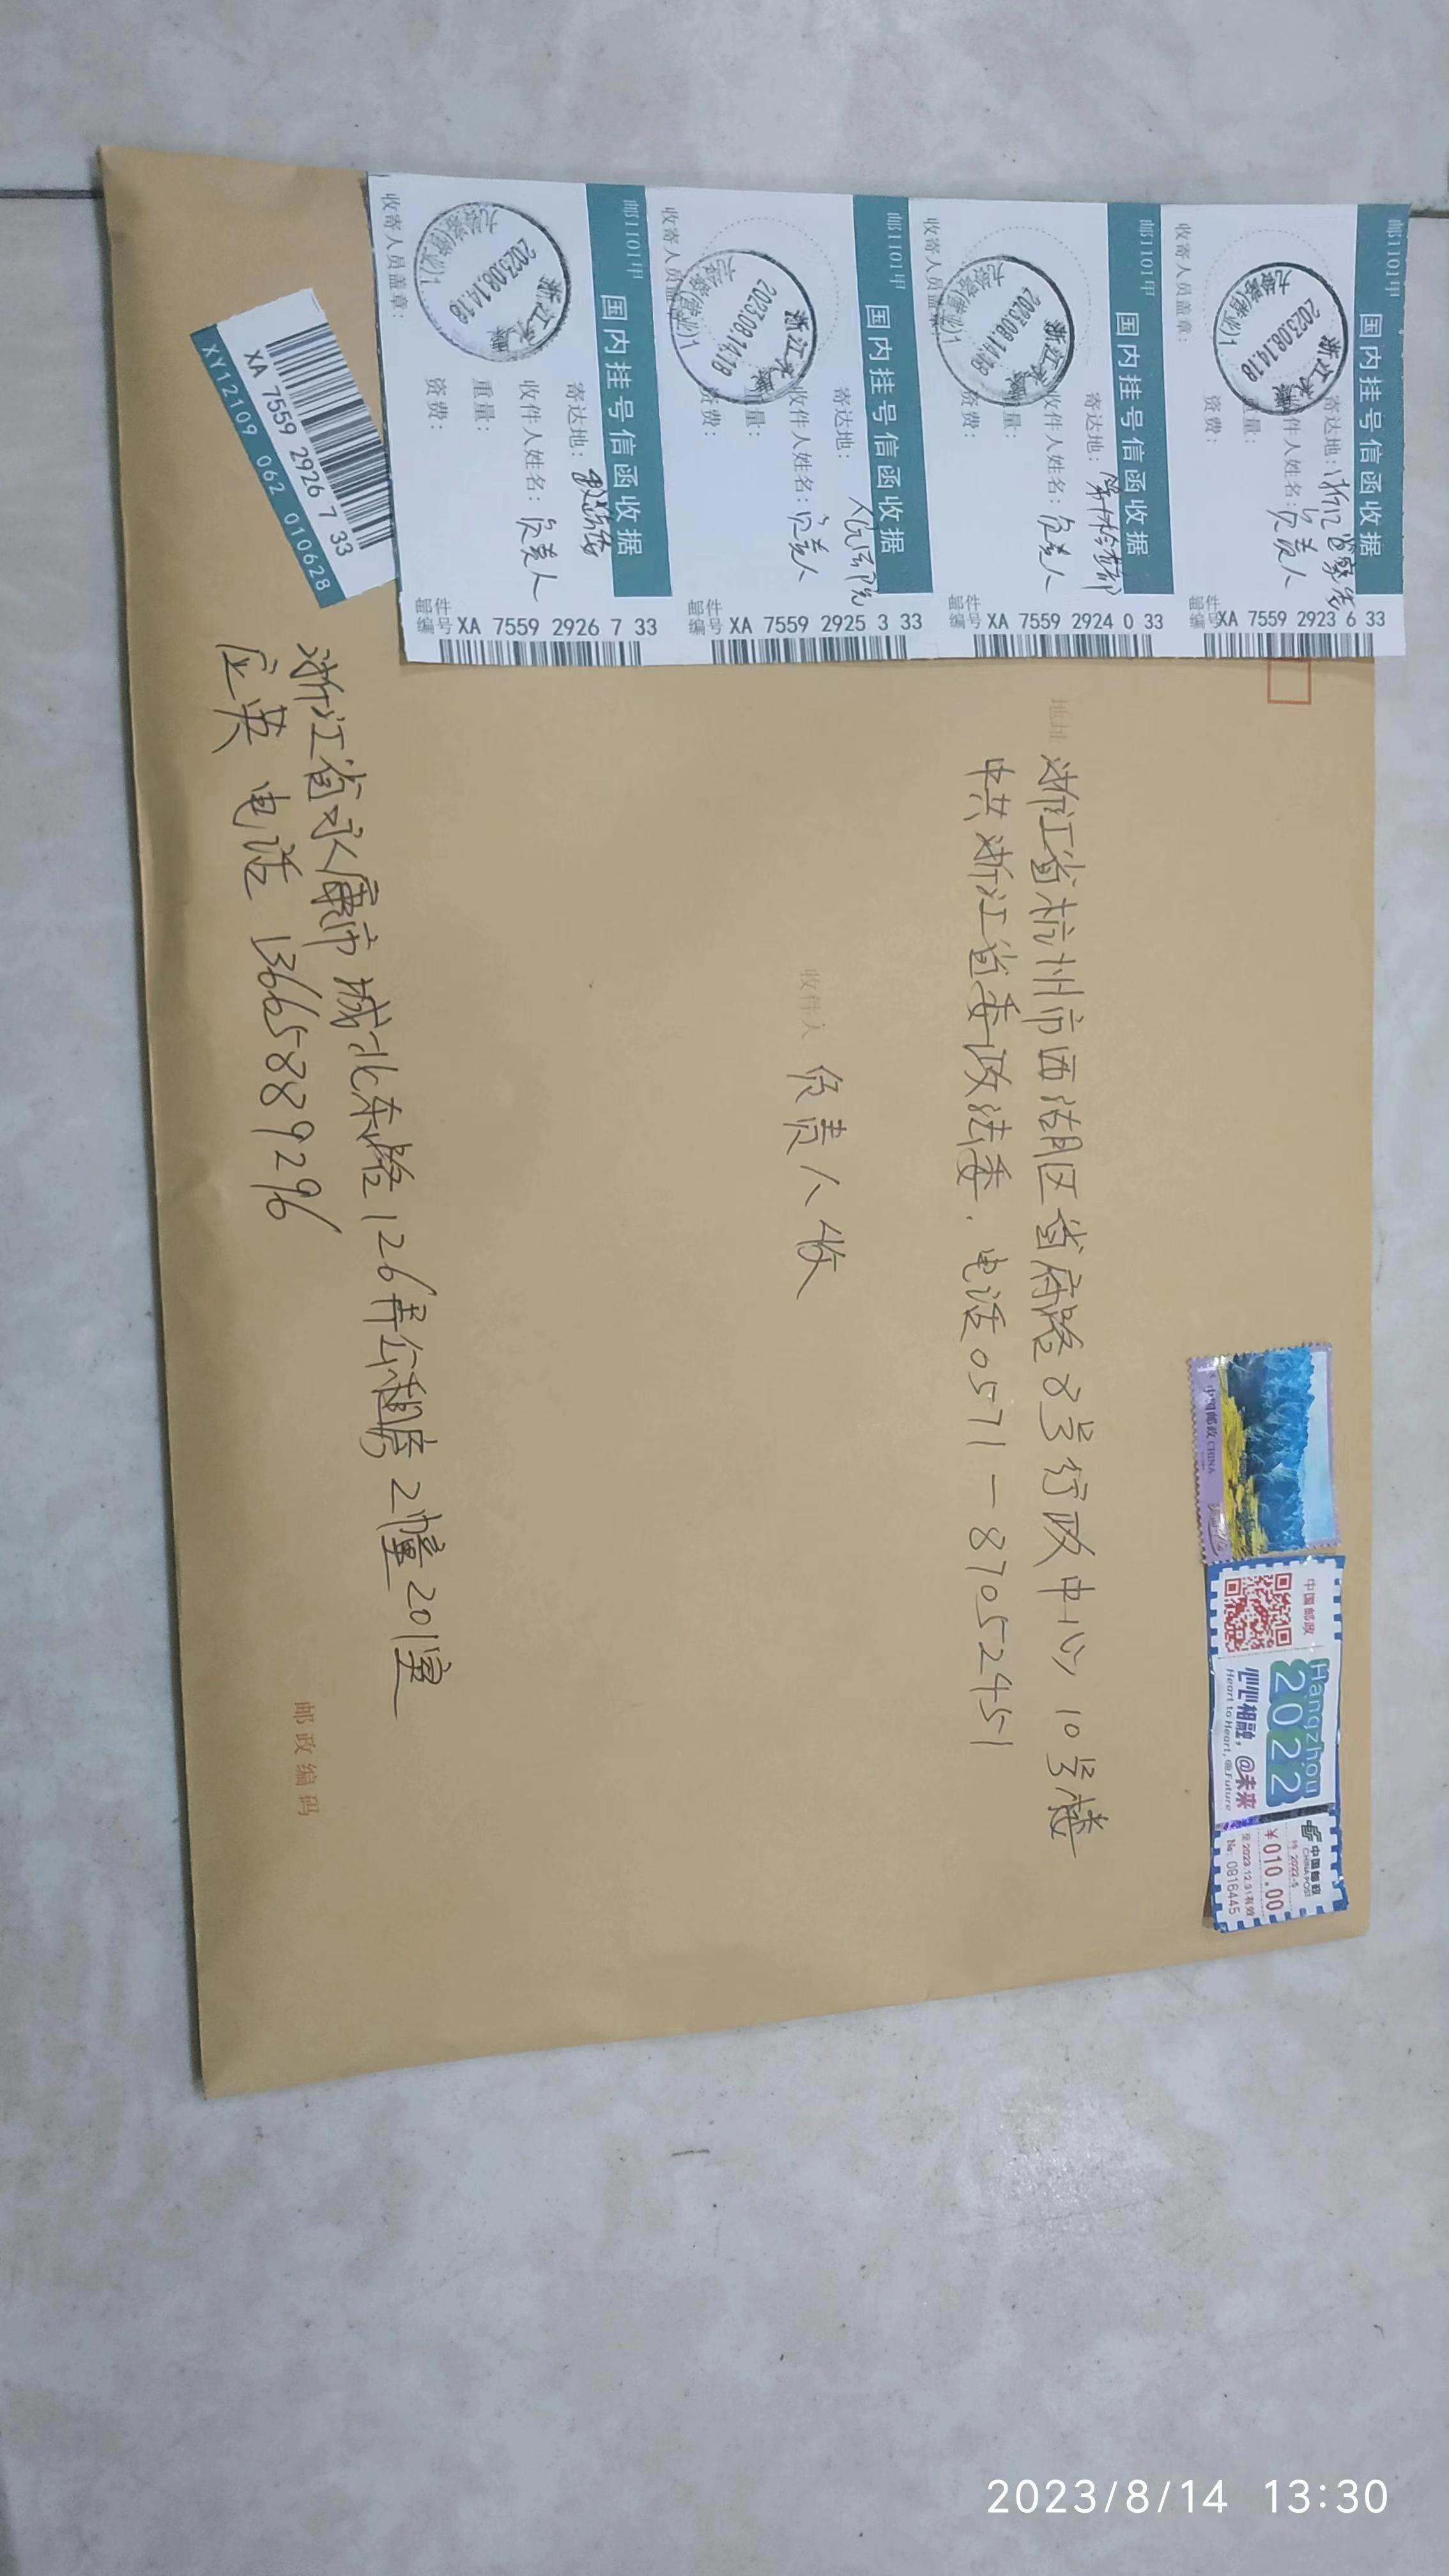 邮1101甲
国内挂号信函收据
寄达地:浙江省
收件人姓名:负责人
量:
资费:
收寄人员盖章:
浙江永康
2023.08.14.18
邮件编号 XA 7559 2923 6 33
邮1101甲
国内挂号信函收据
寄达地:
收件人姓名:负责人
量:
资费:
收寄人员盖章:
浙江永康
2023.08.14.18
邮件编号 XA 7559 2924 0 33
邮1101甲
国内挂号信函收据
寄达地:人民法院
收件人姓名:负责人
量:
资费:
收寄人员盖章:
浙江永康
2023.08.14.18
邮件编号 XA 7559 2925 3 33
邮1101甲
国内挂号信函收据
寄达地:
收件人姓名:负责人
重量:
资费:
收寄人员盖章:
浙江永康
2023.08.14.18
邮件编号 XA 7559 2926 7 33
XA 7559 2926 7 33
XY12109 062 010628
中国邮政 CHINA
中国邮政
Hangzhou
2022
心心相融,@未来
Heart to Heart, @Future
中国邮政
CHINA POST
¥010.00
至2023.12.31有效
№: 0816445
地址 浙江省杭州市西湖区省府路8号行政中心10号楼
中共浙江省委政法委. 电话0571-87052451
收件人 负责人收
浙江省永康市城北东路126弄公租房2幢201室
应英 电话 13665889296
邮政编码
2023/8/14 13:30